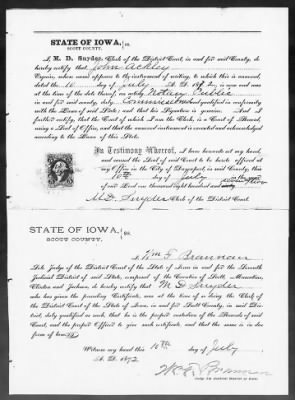 STATE OF IOWA, } ss.
SCOTT COUNTY,
I, M. D. Snyder, Clerk of the District Court, in and for said County, do
hereby certify, that John Ackley
Esquire, whose name appears to the instrument of writing, to which this is annexed,
dated the 10 day of July A. D. 1872, is now and was
at the time of the date thereof, an acting Notary Public
in and for said county, duly Commissioned and qualified in conformity
with the Laws of said State; and that his Signature is genuine. And I
further certify, that the Court of which I am the Clerk, is a Court of Record,
using a Seal of Office, and that the annexed instrument is executed and acknowledged
according to the Laws of this State.
In Testimony Whereof, I have hereunto set my hand,
and caused the Seal of said Court to be hereto affixed at
my Office in the City of Davenport, in said County, this
10th day of July in the year
of our Lord one thousand eight hundred and
M. D. Snyder Clerk of the District Court.
STATE OF IOWA, } ss.
SCOTT COUNTY,
I, Wm F. Brannan
Sole Judge of the District Court of the State of Iowa in and for the Seventh
Judicial District of said State, composed of the Counties of Scott, Muscatine,
Clinton and Jackson, do hereby certify, that M D Snyder
who has given the preceding Certificate, was at the time of so doing the Clerk of
the District Court of the State of Iowa, in and for Scott County, in said Dis-
trict, duly qualified as such, that he is the perfect custodian of the Records of said
Court, and the proper Officer to give such certificate, and that the same is in due
form of Law.
Witness my hand this 10th day of July
A. D. 1872
Wm F. Brannan
Judge 7th Judicial District of Iowa.